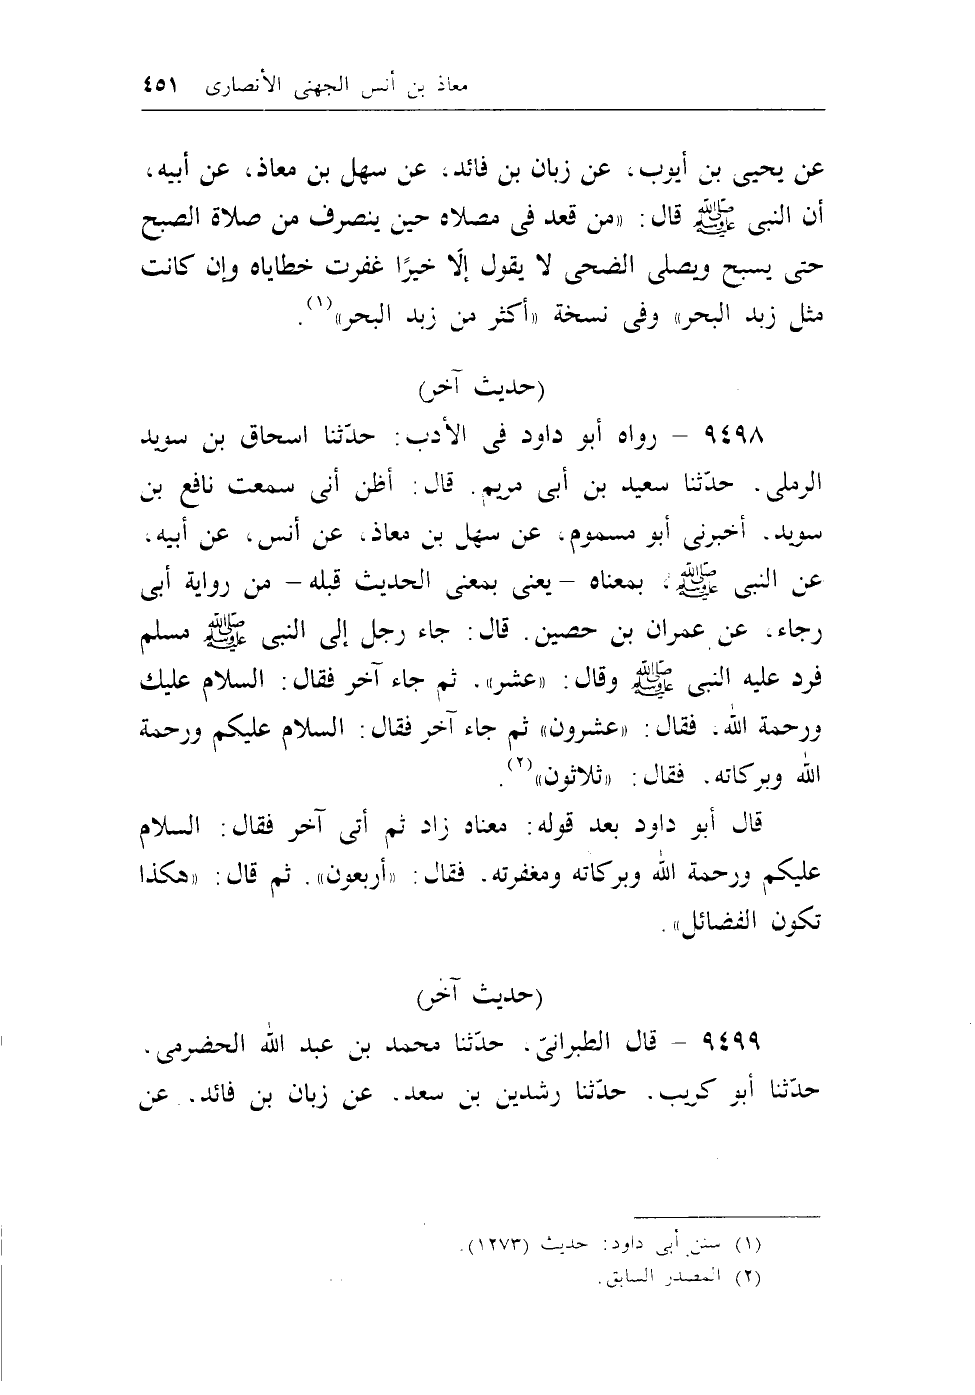 معاذ بن أنس الجهنى الأنصارى ٤٥١
عن يحيى بن أيوب، عن زبان بن فائد، عن سهل بن معاذ، عن أبيه،
أن النبى ﷺ قال: «من قعد فى مصلاه حين ينصرف من صلاة الصبح
حتى يسبح ويصلى الضحى لا يقول إلّا خيرًا غفرت خطاياه وإن كانت
مثل زبد البحر» وفى نسخة «أكثر من زبد البحر»(١).
(حديث آخر)
٩٤٩٨ – رواه أبو داود فى الأدب: حدّثنا اسحاق بن سويد
الرملى. حدّثنا سعيد بن أبى مريم. قال: أظن أنى سمعت نافع بن
سويد. أخبرنى أبو مسموم، عن سهل بن معاذ، عن أنس، عن أبيه،
عن النبى ﷺ، بمعناه –يعنى بمعنى الحديث قبله– من رواية أبى
رجاء، عن عمران بن حصين. قال: جاء رجل إلى النبى ﷺ مسلم
فرد عليه النبى ﷺ وقال: «عشر». ثم جاء آخر فقال: السلام عليك
ورحمة الله. فقال: «عشرون» ثم جاء آخر فقال: السلام عليكم ورحمة
الله وبركاته. فقال: «ثلاثون»(٢).
قال أبو داود بعد قوله: معناه زاد ثم أتى آخر فقال: السلام
عليكم ورحمة الله وبركاته ومغفرته. فقال: «أربعون». ثم قال: «هكذا
تكون الفضائل».
(حديث آخر)
٩٤٩٩ – قال الطبرانىّ. حدّثنا محمد بن عبد الله الحضرمى.
حدّثنا أبو كريب. حدّثنا رشدين بن سعد. عن زبان بن فائد. عن
(١) سنن أبى داود: حديث (١٢٧٣).
(٢) المصدر السابق.